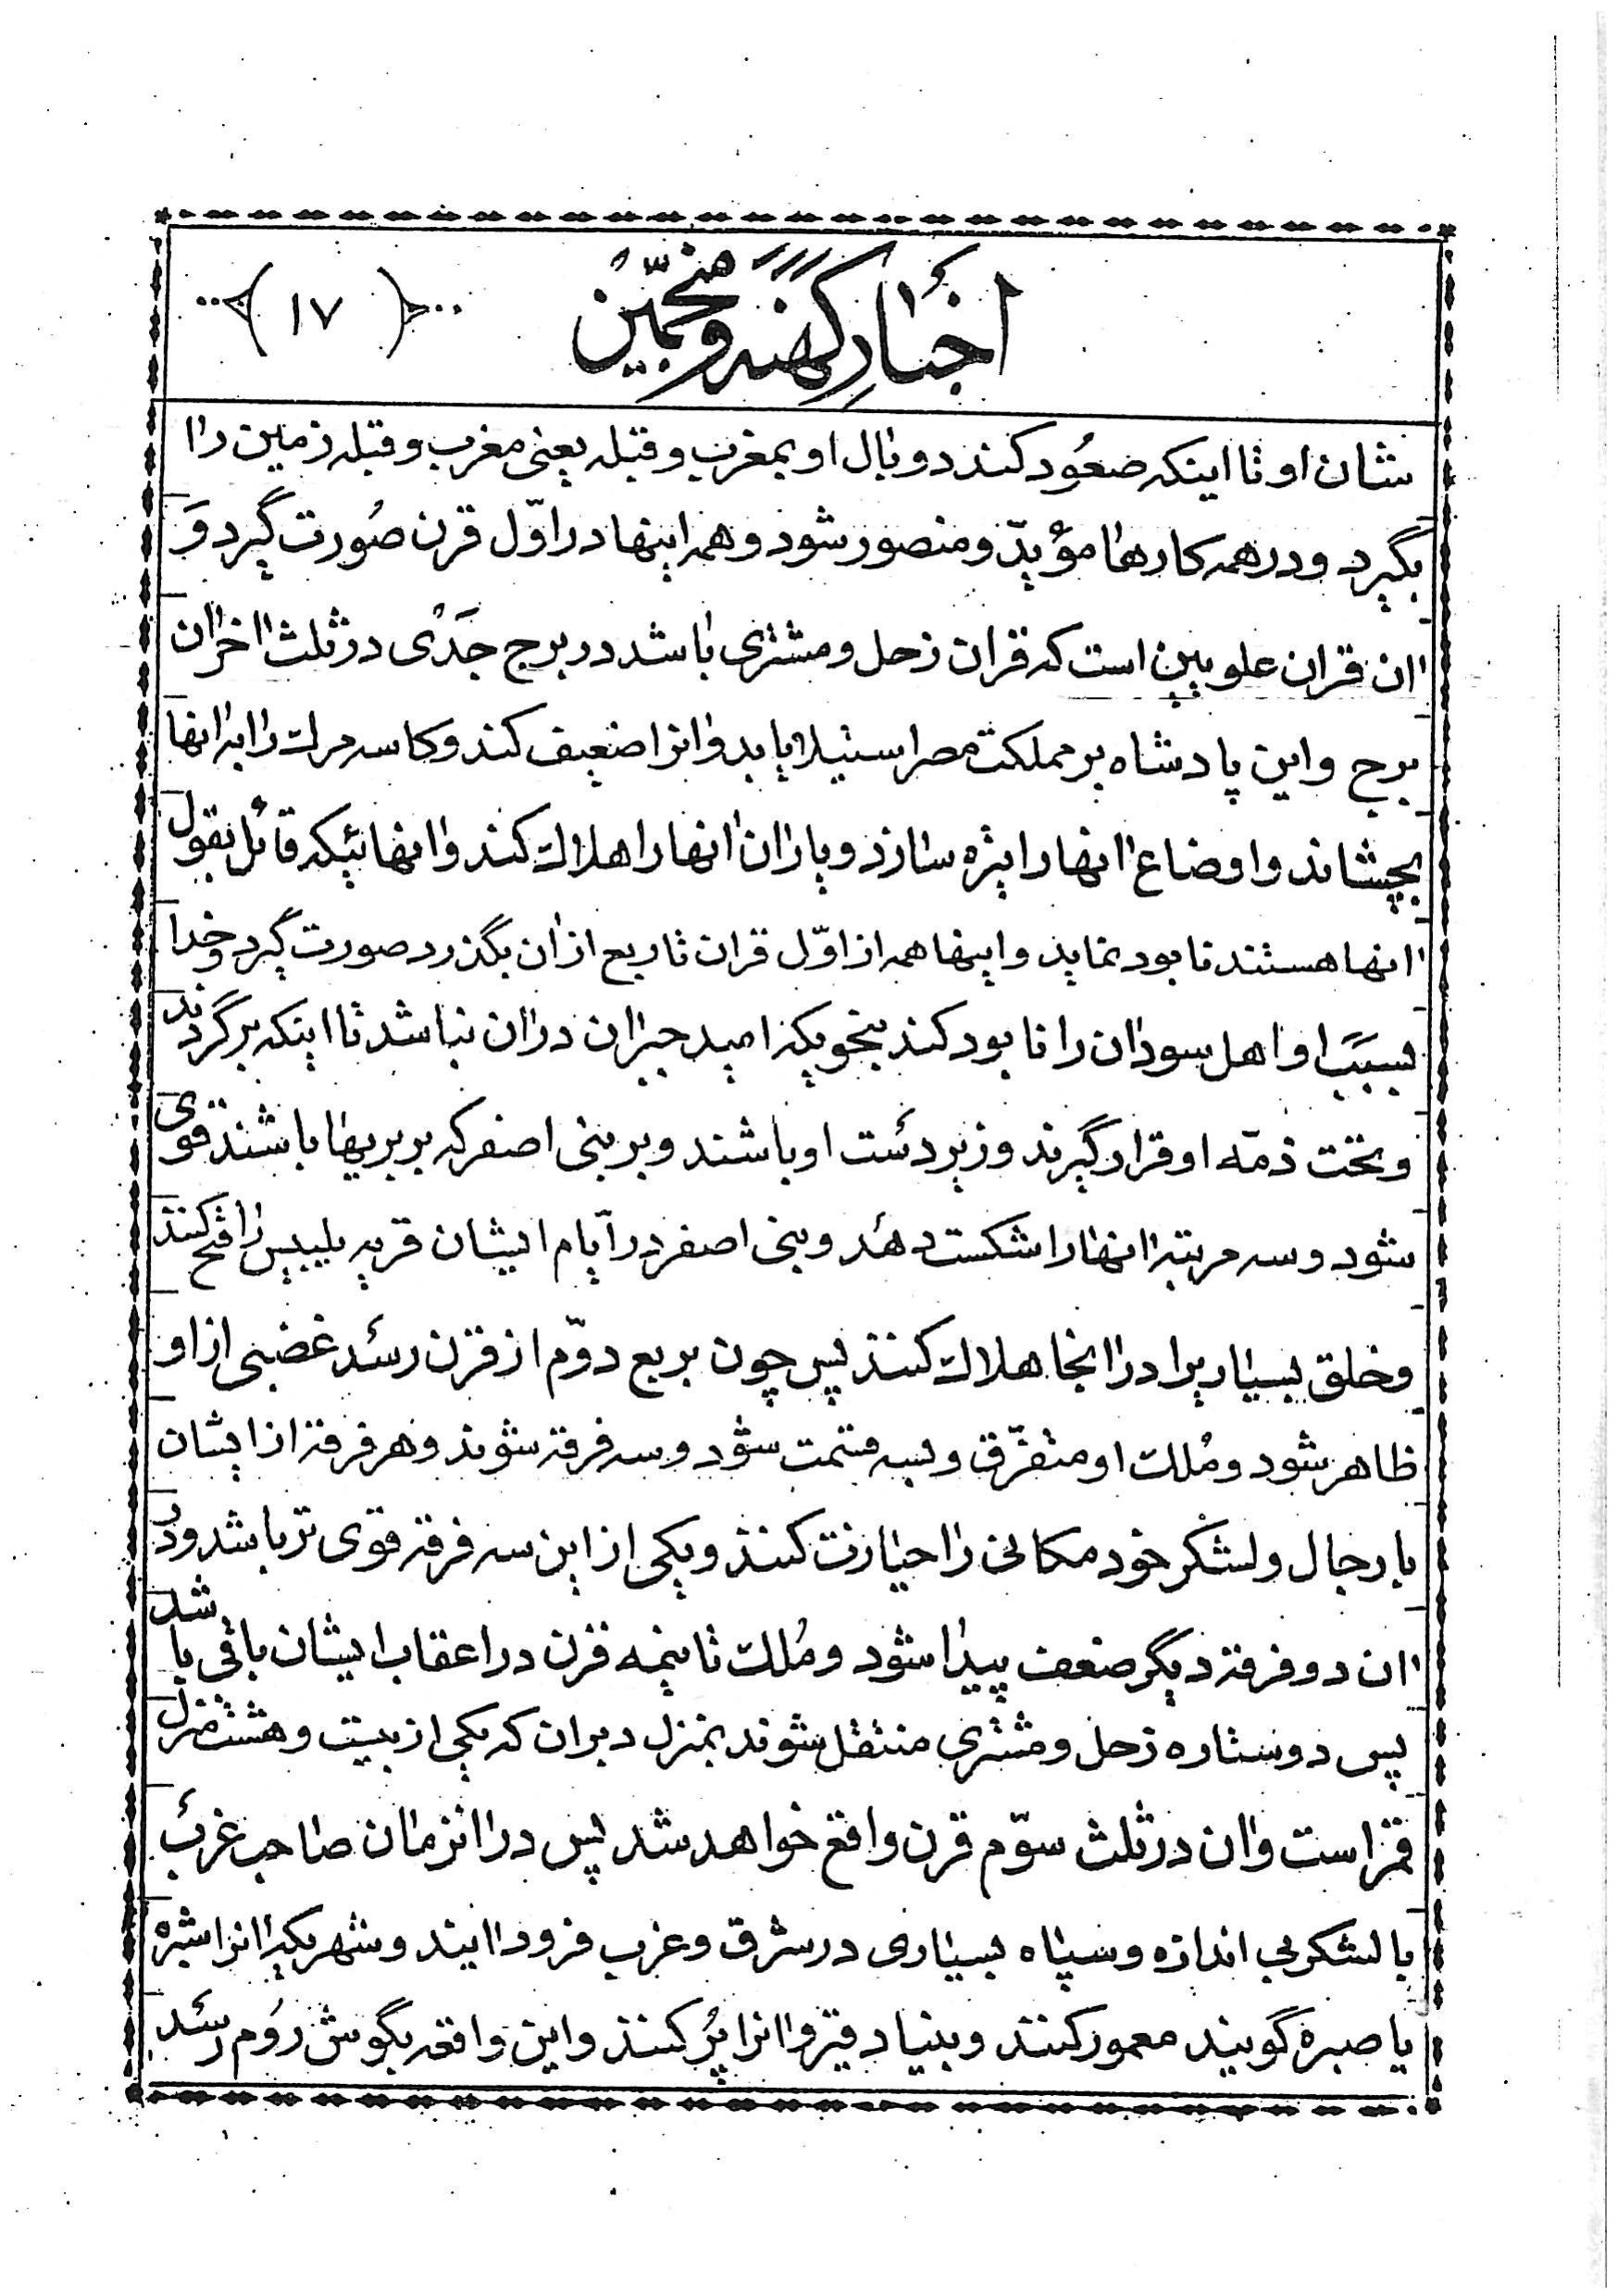 اخبار کهنه و منجمین
﴿ ۱۷ ﴾
شان او تا اینکه صعود کند دو بال او بمغرب و قبله یعنی مغرب و قبله زمین را
بگیرد و در همه کارها مؤید و منصور شود و همه اینها در اوّل قرن صورت گیرد و
آن قران علویین است که قران زحل و مشتری باشد در برج جدی در ثلث آخر آن
برج و این پادشاه بر مملکت مصر استیلا یابد و آنرا ضعیف کند و کاسه مرک را به آنها
بچشاند و اوضاع آنها را تیره سازد و یاران آنها را هلاک کند و آنهائیکه قائل بقول
آنها هستند نابود نماید و اینها همه از اوّل قران تا ربع از آن بگذرد صورت گیرد و خدا
بسبب او اهل سودان را نابود کند بنحویکه امید جبران در آن نباشد تا اینکه برگردند
و تحت ذمّه او قرار گیرند و زیر دست او باشند و بر بنی اصفر که بربریها باشند قوی
شود و سه مرتبه آنها را شکست دهد و بنی اصفر در ایّام ایشان قریه بلبیس را فتح کنند
و خلق بسیاریرا در آنجا هلاک کنند پس چون بربع دوّم از قرن رسد غضبی از او
ظاهر شود و مُلک او متفرّق و بسه قسمت شود و سه فرقه شوند و هر فرقه از ایشان
با رجال و لشکر خود مکانی را حیازت کنند و یکی از این سه فرقه قوی تر باشد و در
آن دو فرقه دیگر ضعف پیدا شود و مُلک تا نیمه قرن در اعقاب ایشان باقی باشد
پس دو ستاره زحل و مشتری منتقل شوند بمنزل دبران که یکی از بیست و هشت منزل
قمر است و آن در ثلث سوّم قرن واقع خواهد شد پس در آنزمان صاحب غرب
با لشکر بی اندازه و سپاه بسیاری در شرق و غرب فرود آیند و شهریکه آنرا شبره
یا صبره گویند معمور کنند و بنیاد قیروانرا پُر کنند و این واقعه بگوش روُم رسد